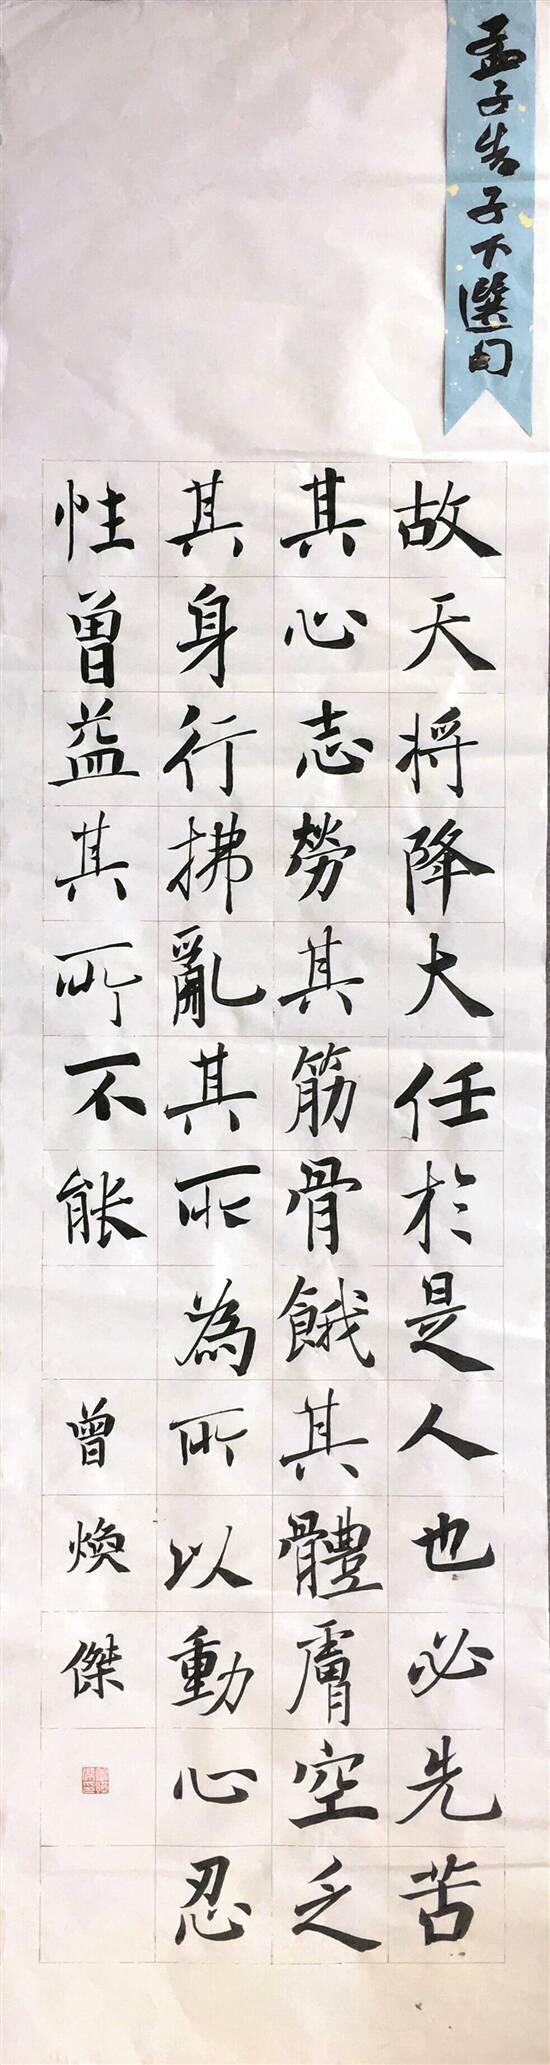 孟子告子下選句
故天將降大任於是人也必先苦
其心志勞其筋骨餓其體膚空乏
其身行拂亂其所為所以動心忍
性曾益其所不能
曾煥傑